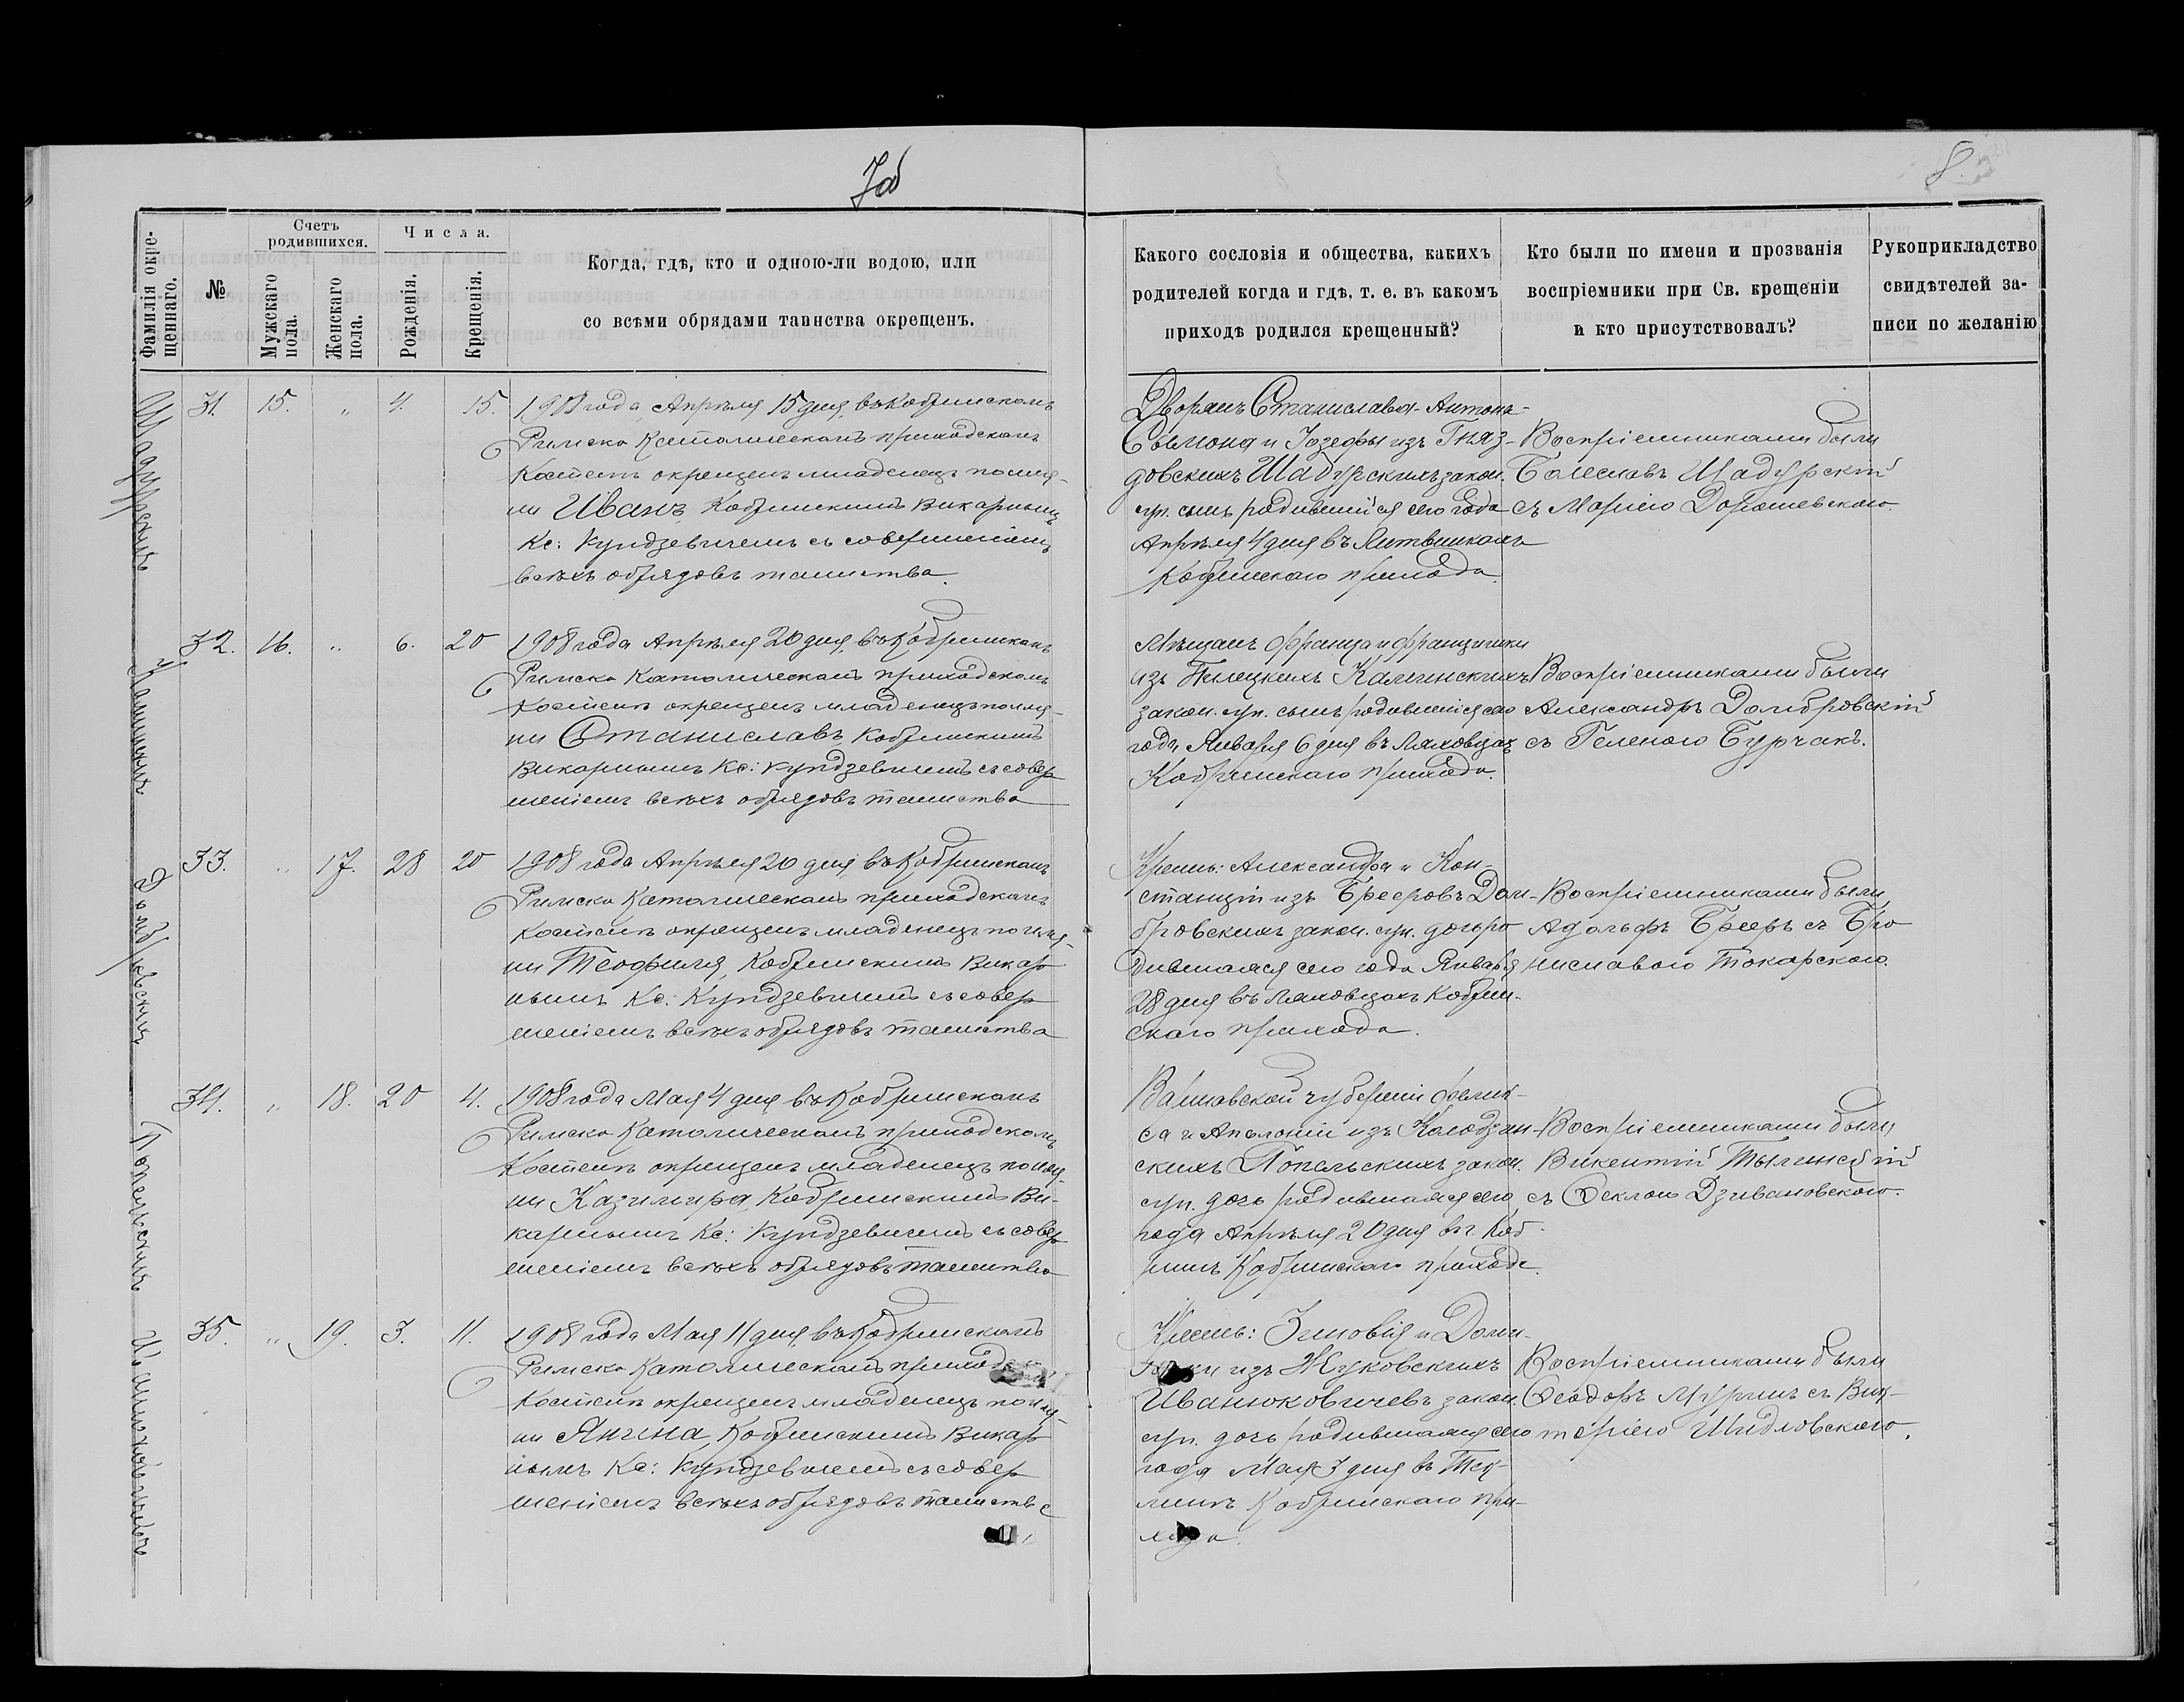 7об
8.
Фамилія окре-
щеннаго.
№
Счетъ
родившихся.
Мужскаго
пола.
Женскаго
пола.
Числа.
Рожденія.
Крещенія.
Когда, гдѣ, кто и одною-ли водою, или
со всѣми обрядами таинства окрещенъ.
Какого сословія и общества, какихъ
родителей когда и гдѣ, т. е. въ какомъ
приходѣ родился крещенный?
Кто были по имени и прозванія
воспріемники при Св. крещеніи
и кто присутствовалъ?
Рукоприкладство
свидѣтелей за-
писи по желанію
31. 15. „ 4. 15.
1908 года Апрѣля 15 дня, въ Кобринскомъ
Римско Католическомъ приходскомъ
Костелѣ окрещенъ младенецъ по име-
ни Иванъ, Кобринскимъ Викарнымъ
Кс: Кундзевичемъ съ совершеніемъ
всѣхъ обрядовъ таинства.
Дворянъ Станислава-Антона-
Сымона и Іозефы изъ Гняз-
довскихъ Шадурскихъ закон.
суп. сынъ родившійся сего года
Апрѣля 4 дня въ Литвинкахъ
Кобринскаго прихода.
Воспріемниками были
Болеславъ Шадурскій
съ Маріею Дорошевскою
32. 16. „ 6. 20
1908 года Апрѣля 20 дня, въ Кобринскомъ
Римско Католическомъ приходскомъ
Костелѣ окрещенъ младенецъ по име-
ни Станиславъ Кобринскимъ
Викарнымъ Кс: Кундзевичемъ съ совер
шеніемъ всѣхъ обрядовъ таинства
Мѣщанъ Франца и Францишки
изъ Пилецкихъ Калинскихъ
закон. суп. сынъ родившійся сего
года Января 6 дня въ Ляховцах
Кобринскаго прихода.
Воспріемниками были
Александръ Домбровскій
съ Геленою Бурчакъ.
Домбровскихъ
33. „ 17. 28 20
1908 года Апрѣля 20 дня въ Кобринскомъ
Римско Католическомъ приходскомъ
Костелѣ окрещенъ младенецъ по име-
ни Теофиля, Кобринскимъ Викар
нымъ Кс: Кундзевичемъ съ совер
шеніемъ всѣхъ обрядовъ таинства
Крестъ: Александра и Кон-
станціи изъ Брееровъ Дом-
бровскихъ закон. суп. дочь ро
дившаяся сего года Января
28 дня въ Ляховцахъ Кобрин-
скаго прихода.
Воспріемниками были
Адольфъ Брееръ съ Бро
ниславою Токарскою.
34. „ 18. 20 4.
1908 года Мая 4 дня въ Кобринскомъ
Римско Католическомъ приходскомъ
Костелѣ окрещенъ младенецъ по име-
ни Казимира, Кобринскимъ Ви-
карнымъ Кс: Кундзевичемъ съ совер
шеніемъ всѣхъ обрядовъ таинства
Варшавской губерніи Фелик-
са и Аполоніи изъ Колодзин-
скихъ Попельскихъ закон.
суп. дочь родившаяся сего
года Апрѣля 20 дня въ г. Коб
ринѣ Кобринскаго прихода.
Воспріемниками были
Викентій Тылинскій
съ Феклою Дзивановскою.
35. „ 19. 3. 11.
1908 года Мая 11 дня, въ Кобринскомъ
Римско Католическомъ приход
Костелѣ окрещенъ младенецъ по име-
ни Янина, Кобринскимъ Викар
нымъ Кс: Кундзевичемъ съ совер
шеніемъ всѣхъ обрядовъ таинства
Крестъ: Зиновія и Доми-
изъ Жуковскихъ
Иванюковичевъ закон.
суп. дочь родившаяся сего
года Мая 3 дня въ
Кобринскаго при-
хода.
Воспріемниками были
Феодоръ съ Вик-
торіею Шидловскою.